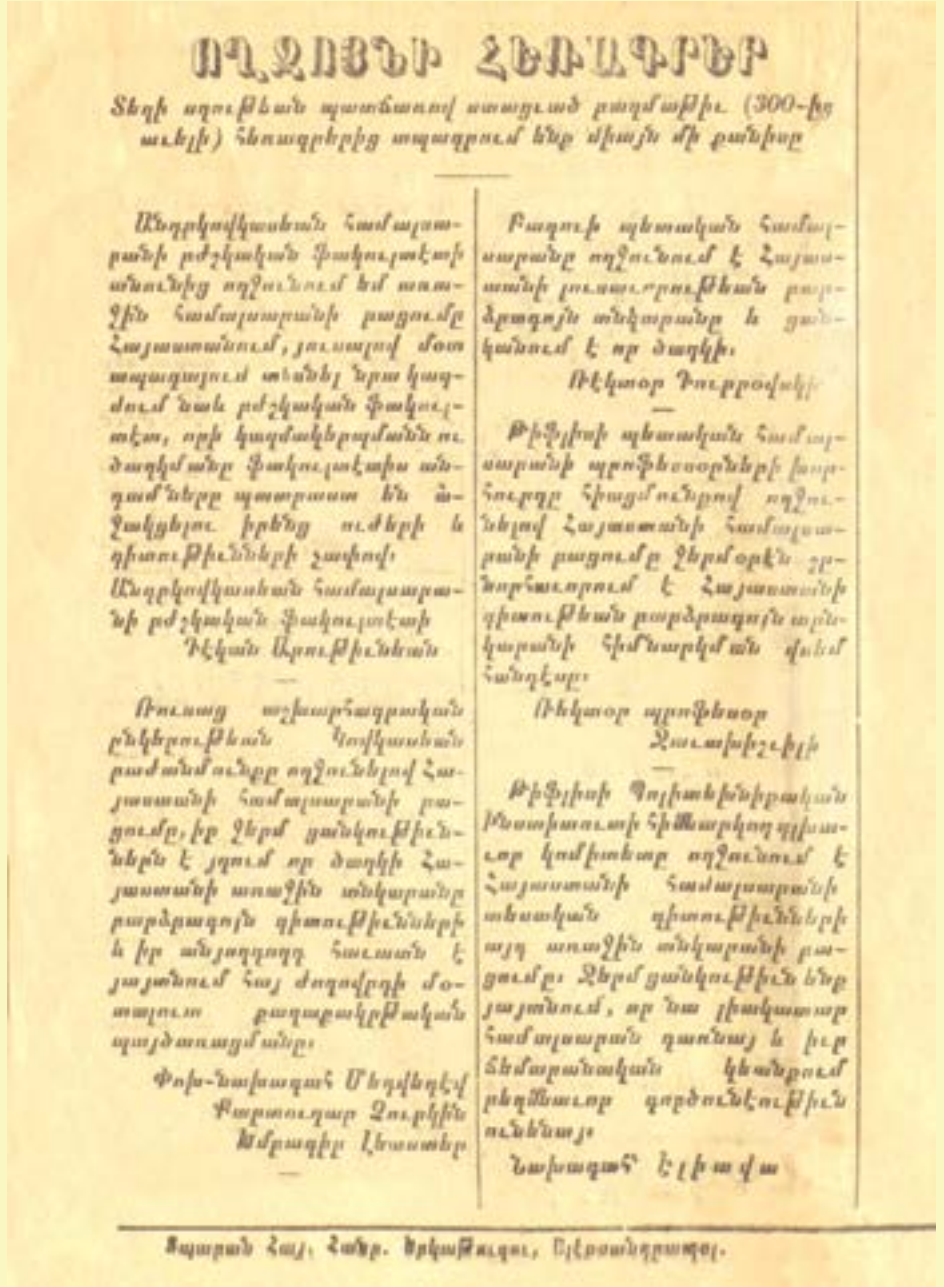 ՈՂՋՈՅՆԻ ՀԵՌԱԳՐԵՐ
Տեղի սղութեան պատճառով ստացւած բազմաթիւ (300-ից
աւելի) հեռագրերից տպագրում ենք միայն մի քանիսը
Անդրկովկասեան համալսա-
րանի բժշկական ֆակուլտէտի
անունից ողջունում եմ առա-
ջին համալսարանի բացումը
Հայաստանում, յուսալով մօտ
ապագայում տեսնել նրա կազ-
մում նաև բժշկական ֆակուլ-
տէտ, որի կազմակերպմանն ու
ծաղկմանը ֆակուլտէտիս ան-
դամները պատրաստ են ա-
ջակցելու իրենց ուժերի և
գիտութիւնների չափով։
Անդրկովկասեան համալսարա-
նի բժշկական ֆակուլտէտի
Դէկան Արութիւնեան
Ռուսաց աշխարհագրական
ընկերութեան Կովկասեան
բաժանմունքը ողջունելով Հա-
յաստանի համալսարանի բա-
ցումը, իր ջերմ ցանկութիւն-
ներն է յղում որ ծաղկի Հա-
յաստանի առաջին տնկարանը
բարձրագոյն գիտութիւնների
և իր անյողդողդ հաւատն է
յայտնում հայ ժողովրդի մօ-
տալուտ քաղաքակրթական
պայծառացմանը։
Փոխ-նախագահ Մեդվեդէվ
Քարտուղար Զուրկին
Խմբագիր Լէաստեր
Բագուի պետական համալ-
սարանը ողջունում է Հայաս-
տանի լուսաւորութեան բար-
ձրագոյն տնկարանը և ցան-
կանում է որ ծաղկի։
Ռէկտօր Դուբրօվսկի
Թիֆլիսի պետական համալ-
սարանի պրոֆեսօրների խոր-
հուրդը հիացմունքով ողջու-
նելով Հայաստանի համալսա-
րանի բացումը ջերմօրէն շը-
նորհաւորում է Հայաստանի
գիտութեան բարձրագոյն տըն-
կարանի հիմնարկման վսեմ
հանդէսը։
Ռեկտօր պրոֆեսօր
Ջաւախիշւիլի
Թիֆլիսի Պոլիտեխնիքական
Ինստիտուտի հիմնարկող գլխա-
ւոր կոմիտետը ողջունում է
Հայաստանի համալսարանի
տեսական գիտութիւնների
այդ առաջին տնկարանի բա-
ցումը։ Ջերմ ցանկութիւն ենք
յայտնում, որ նա լիակատար
համալսարան դառնայ և իւր
ճեմարանական կեանքում
բեղմնաւոր գործունէութիւն
ունենայ։
Նախագահ Էլիավա
Տպարան Հայ. Հանր. Երկաթուղու, Ալէքսանդրապօլ.